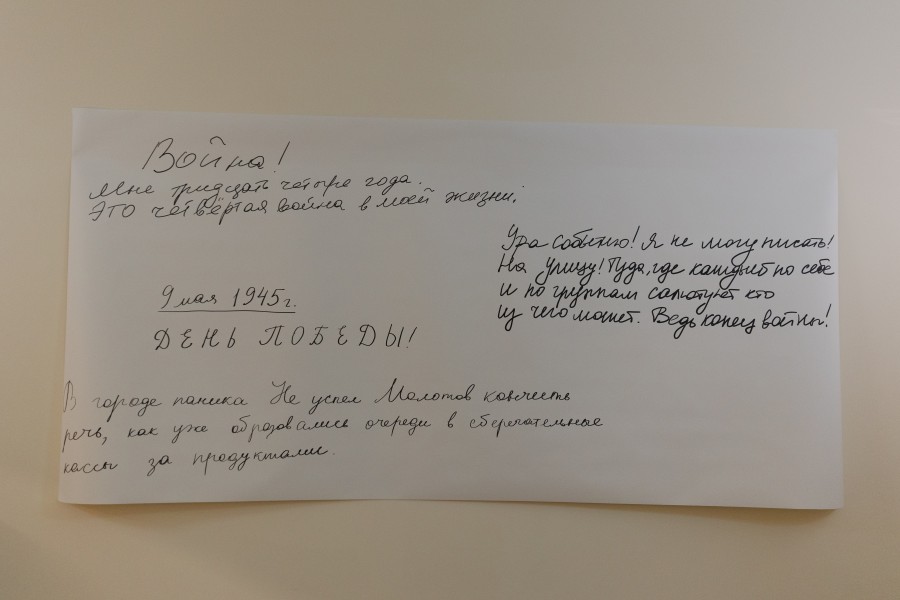 Война!
Мне тридцать четыре года.
Это четвёртая война в моей жизни.
Ура событию! Я не могу писать!
На улицу! Туда, где каждый по себе
и по группам салютует кто
из чего может. Ведь конец войны!
9 мая 1945 г.
ДЕНЬ ПОБЕДЫ!
В городе паника Не успел Молотов кончить
речь, как уже образовались очереди в сберегательные
кассы за продуктами.